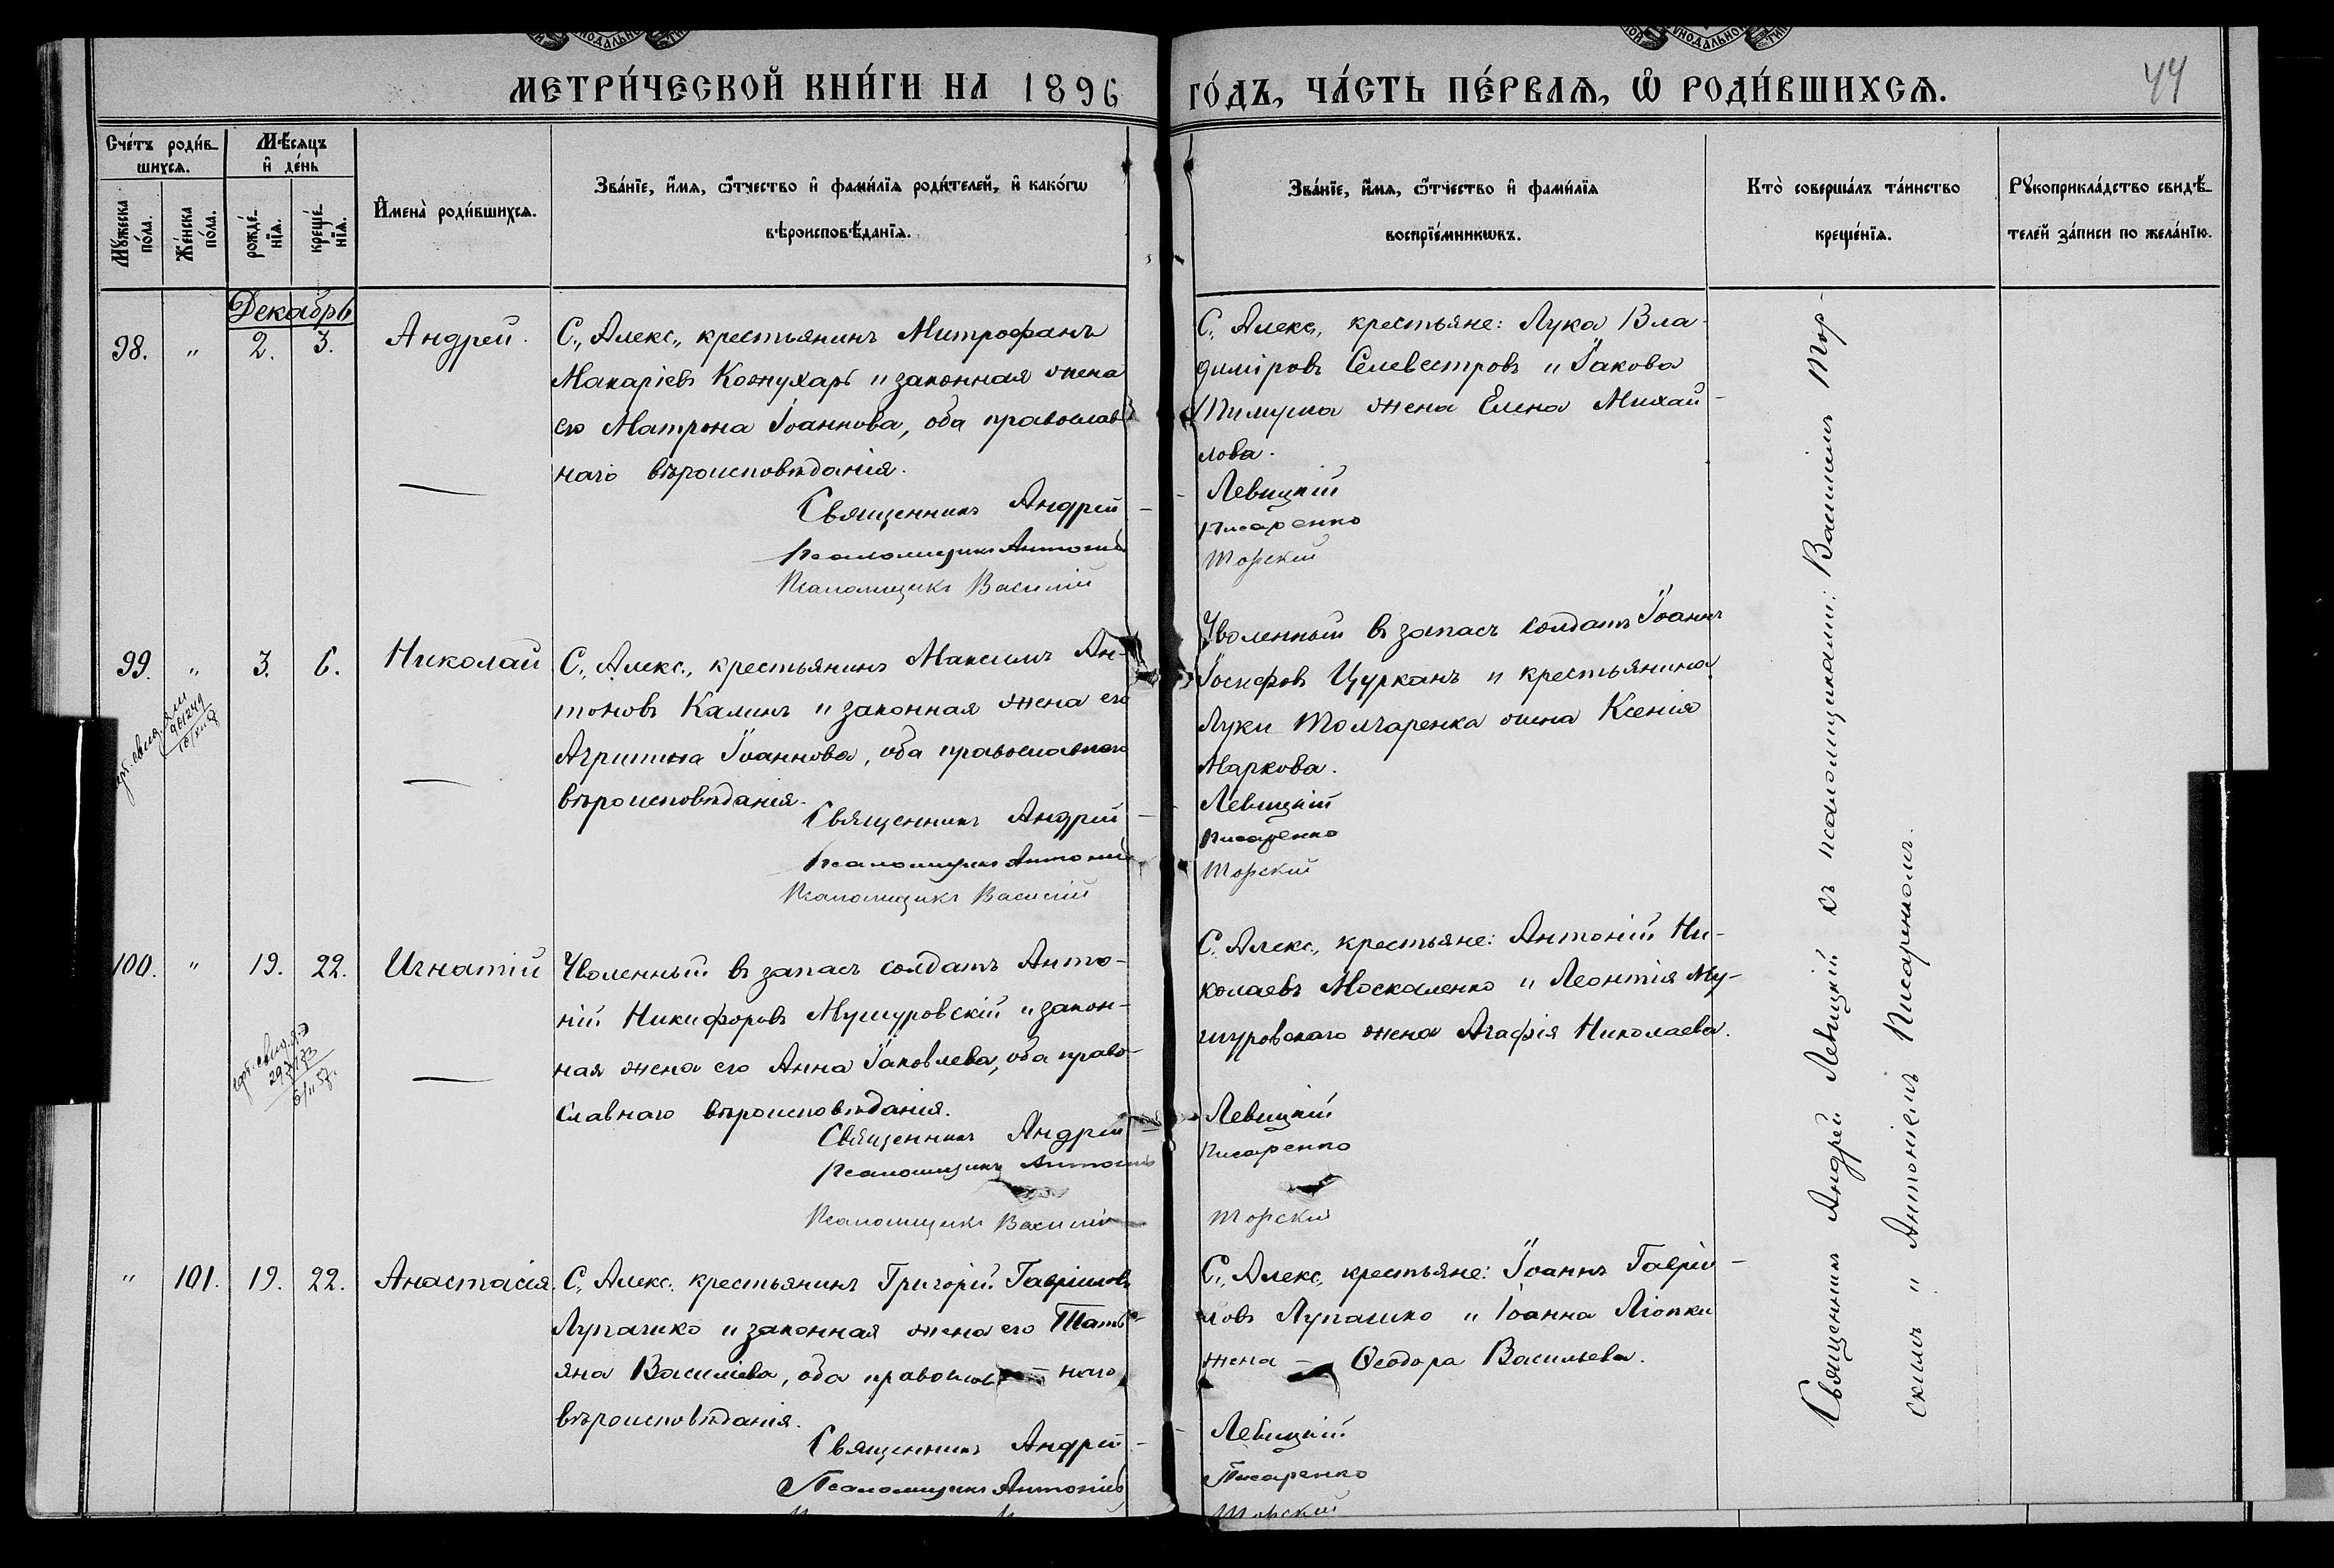 МЕТРИ́ЧЕСКОЙ КНИ́ГИ НА 1896 ГО́ДЪ, ЧА́СТЬ ПЕ́РВАѦ, Ѡ҆ РОДИ́ВШИХСѦ.
44
Сче́тъ роди́в-
шихся.
Мѣ́сяцъ
и҆ де́нь
Му́жеска
по́ла.
Же́нска
по́ла.
рожде́-
нїѧ.
креще́-
нїѧ.
И҆мена̀ роди́вшихсѧ.
Зва́нїе, и҆́мѧ, ѻ҆́тчество и҆ фами́лїѧ роди́телей, и҆ како́гѡ
вѣроисповѣ́данїѧ.
Зва́нїе, и҆́мѧ, ѻ҆́тчество и҆ фами́лїѧ
воспрїе́мникѡвъ.
Кто̀ соверша́лъ та́инство
креще́нїѧ.
Рꙋкоприкла́дство свидѣ́-
телей за́писи по жела́нїю.
Декабрь
98. " 2. 3. Андрей.
С., Алекс., крестьянинъ Митрофанъ
Макаріевъ Кожухарь и законная жена
его Матрона Іоаннова, оба православ-
наго вѣроисповѣданія.
Священникъ Андрей
Псаломщикъ Антоній
Псаломщикъ Василій
С., Алекс., крестьяне: Лука Вла-
диміровъ Селевестровъ и Іакова
жена Елена Михай-
лова.
Левицкій
Писаренко
Торскій
99. " 3. 6. Николай
961249
С., Алекс., крестьянинъ Максимъ Ан-
тоновъ Калинъ и законная жена его
Агрипина Іоаннова, оба православнаго
вѣроисповѣданія.
Священникъ Андрей
Псаломщикъ Антоній
Псаломщикъ Василій
Уволенный въ запасъ солдатъ Іоаннъ
Іосифовъ Цурканъ и крестьянина
Луки Толчаренка жена Ксенія
Маркова.
Левицкій
Писаренко
Торскій
100. " 19. 22. Игнатій
Уволенный въ запасъ солдатъ Анто-
ній Никифоровъ Мушуровскій и закон-
ная жена его Анна Іаковлева, оба право-
славнаго вѣроисповѣданія.
Священникъ Андрей
Псаломщикъ Антоній
Псаломщикъ Василій
С., Алекс., крестьяне: Антоній Ни-
колаевъ Москаленко и Леонтія Му-
шуровскаго жена Агафія Николаева.
Левицкій
Писаренко
Торскій
" 101. 19. 22. Анастасія.
С., Алекс. крестьянинъ Григорій Гавріиловъ
Лупашко и законная жена его Тать-
яна Василіева, оба православ-наго
вѣроисповѣданія.
Священникъ Андрей
Псаломщикъ Антоній
С., Алекс., крестьяне: Іоаннъ Гаврі-
ловъ Лупашко и Іоанна Ліопки
жена - Ѳеодора Васильева.
Левицкій
Писаренко
Торскій
Священникъ Андрей Левицкій съ псаломщиками: Василіемъ Тор-
скимъ и Антоніемъ Писаренкомъ.